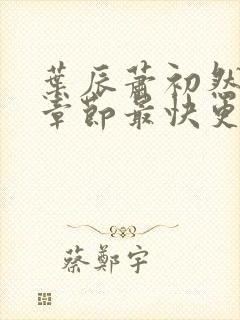 葉辰蕭初然
章節最快更
蔡鄭宇